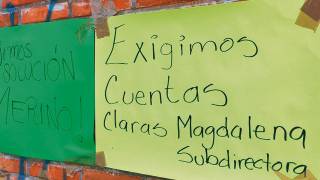 SOLUCIÓN
MERINO!
Exigimos
Cuentas
Claras Magdalena
Subdirectora